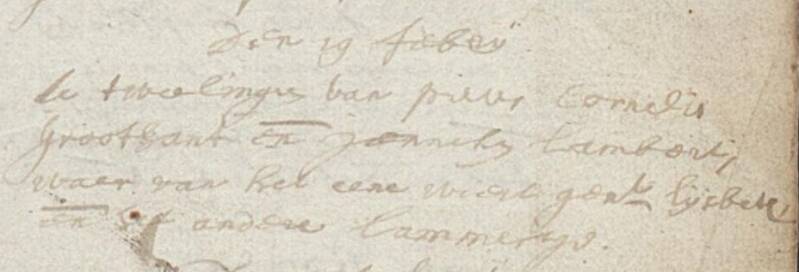 Den 19 febrij
de tweelinges van pieter Cornelis
Groothant en Jannetys Lambert,
waer van het eene wiert gent lijsbet
en et andere Lammertys.